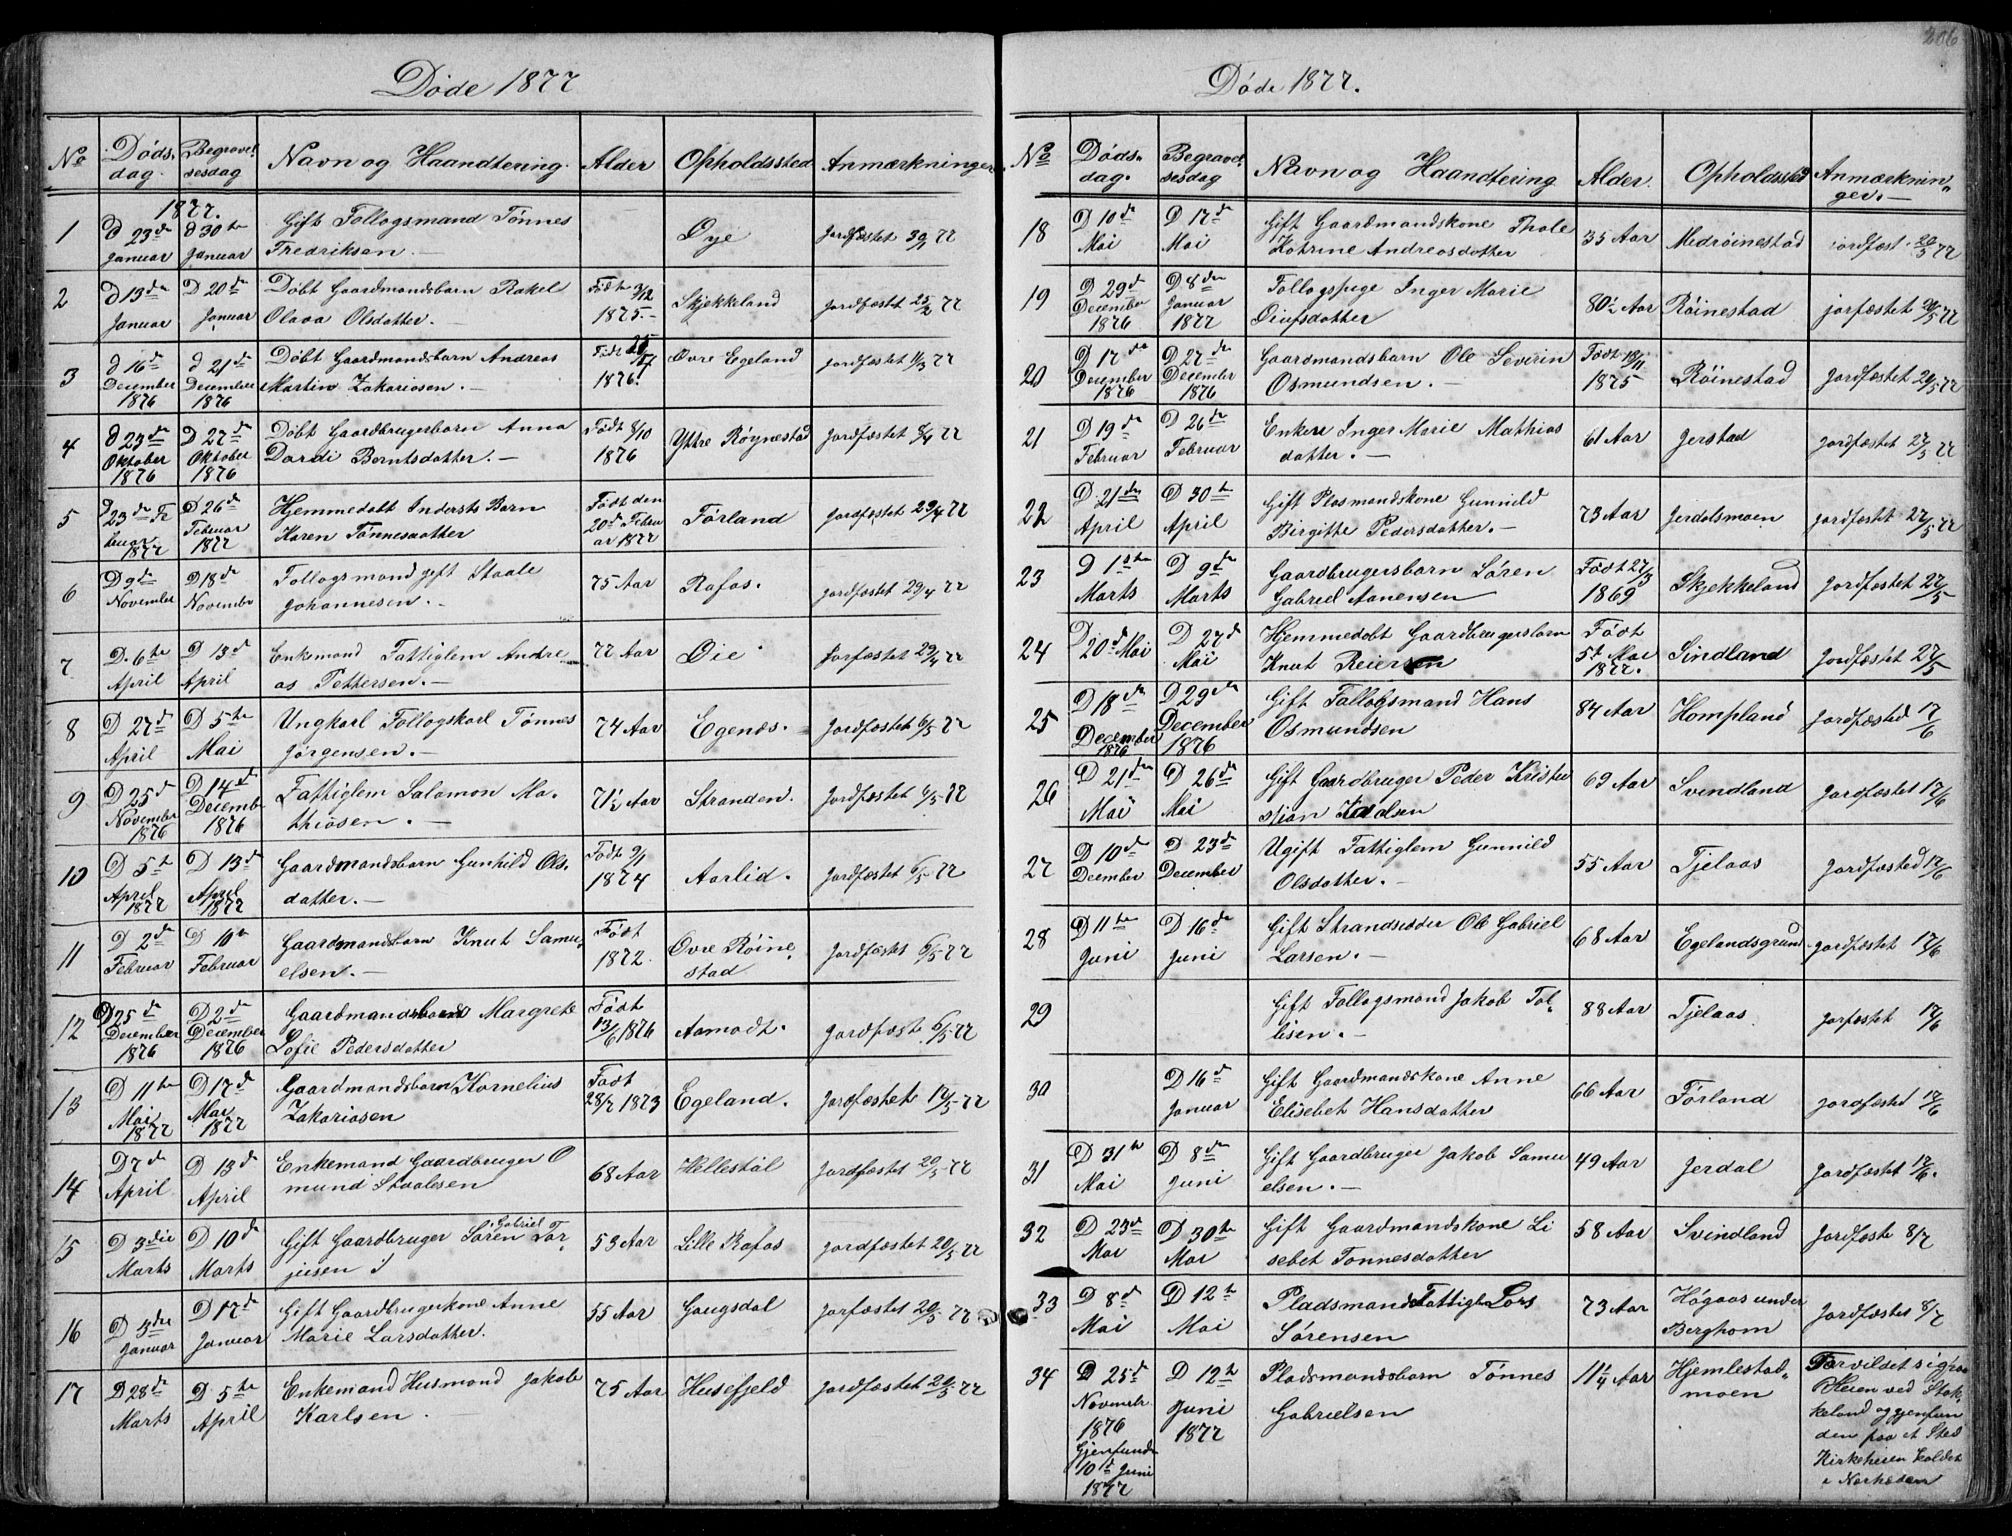 206
Døde 1877
No Døds-dag. Begravelsesdag Navn og Haandtering. Alder Opholdssted Anmærkninger
1877.
1 d 23de Januar d 30te Januar Gift Follogsmand Tønnes Fredriksen. — Øye Jordfæstet 30/1 77
2 d 13de Januar D 20de Januar Døbt Gaardmandsbarn Rakel Olava Olsdatter. — Født 3/12 1875. — Skjekkeland Jordfæstet 25/2 77
3 d 16de December 1876 d 21de December 1876 Døbt Gaardmandsbarn Andreas Martin Zakariasen. — Født 1876. Øvre Egeland Jordfæstet 11/3 77
4 d 23de Oktober 1876 D 27de Oktober 1876 Døbt Gaardbrugerbarn Anna Dardi Berntsdatter. — Født 8/10 1876 Yttre Røynestad Jordfæstet 8/4 77
5 D 23de Februar 1877 D 26de Februar 1877 Hjemmedøbt Inderst Barn Karen Tønnesdatter Født den 20de Februar 1877 Førland Jordfæstet 29/4 77
6 D 9de November D 18de Novembr Follogsmand gift Staale Johannesen. — 75 Aar Rafos. Jordfæstet 29/4 77
7 D. 6te April D 13de April Enkemand Fattiglem Andreas Pettersen. — 77 Aar Øie Jorfæstet 29/4 77
8 D 27de April D 5te Mai Ungkarl Follogskarl Tønnes Jørgensen. — 74 Aar Egenæs. Jordfæstet 6/5 77
9 D 25de November 1876 D 14de Decembr 1876 Fattiglem Salamon Mathiasen. — 71½ Aar Stranden. Jordfæstet 6/5-77
10 D 5te April 1877 D 13de April 1877 Gaardmandsbarn Gunhild Olsdatter. — Født 9/1 1874 Aarlid. Jordfæstet 6/5-77
11 D 2de Februar D 10de Februar Gaardmandsbarn Knut Samuelsen. — Født 1872. Øvre Røinestad Jordfæstet 6/5-77
12 D 25de December 1876 D 2de December 1876 Gaardmandsbarn Margrete Sofie Pedersdatter Født 13/6 1876 Aamodt. Jordfæste 6/5-77
13 D 11te Mai 1877 D 17de Mai 1877 Gaardmandsbarn Kornelius Zakariasen Født 28/7 1873 Egeland. Jordfæstet 19/5-77
14 D 7de April D 13de April Enkemand Gaardbruger Omund Staalesen 68 Aar Hellestøl Jordfæstet 20/5-77
15 D 3die Marts D 10de Marts Gift Gaardbruger Søren Gabriel Torjusen 53 Aar Lille Rafos Jordfæstet 20/5-77
16 D 3die Januar D 17de Januar Gift Gaardbrugerkone Anne Marie Larsdatter. 55 Aar Gaugsdal Jorfæstet 20/5-77
17 D 28de Marts D 5te April Enkemand Husmand Jakob Karlsen. — 75 Aar Husefjeld Jordfæstet 20/5-77
Døde 1877.
No Døds-dag. Begravelsesdag Navn og Haandtering Alder. Opholdssted Anmærkninger. —
18 D 10de Mai D 17de Mai Gift Gaardmandskone Thale Katrine Andreasdatter 35 Aar Midrøinestad Jordfæst. 20/5 77
19 D 29de December 1876 D 8de Januar 1877 Follogspige Inger Marie Osmundsdatter 80½ Aar Røinestad jorfæstet 20/5 77
20 D 17de December 1876 D 27de December 1876 Gaardmandsbarn Ole Severin Osmundsen. — Født 18/11 1875 Røinestad Jordfæstet 20/5 77
21 D 19de Februar D 26de Februar Enken Inger Marie Mathiasdatter. — 61 Aar Jerstad Jordfæstet 27/5 77
22 D 21de April D 30te April Gift Plasmandskone Gunnild Birgithe Pedersdatter. — 73 Aar Jerdalsmoen Jordfæstet 27/5 77
23 D 1ste Marts D 9de Marts Gaardbrugersbarn Søren Gabriel Aanensen Født 27/3 1869 Skjekkeland Jordfæstet 27/5
24 D 20de Mai D 27de Mai Hjemmedøbt Gaardbrugersbarn Knut Reiersen Født 5te Mai 1877. Sindland Jordfæstet 27/5
25 D 18de December 1876 D 29de December 1876 Gift Follogsmand Hans Osmundsen 84 Aar Hompland Jordfæsted 17/6
26 D 21de Mai D 26de Mai Gift Gaardbruger Peder Kristian Keielsen 69 Aar Svindland Jordfæstet 17/6
27 D 10de December D 23de December Ugift Fattiglem Gunnild Olsdatter. — 55 Aar Tjelaas Jordfæsted 17/6
28 D 11te Juni D 16de Juni Gift Strandsidder Ole Gabriel Larsen. — 68 Aar Egelandsgrund Jordfæstet 17/6
29 Gift Follogsmand Jakob Tollisen. — 88 Aar Tjelaas Jorfæstet 17/6
30 D 16de Januar Gift Gaardmandskone Anne Elisebet Hansdatter 66 Aar Førland Jordfæsted 17/6
31 D 31te Mai D 8de Juni Gift Gaardbruger Jakob Samuelsen. — 49 Aar Jerdal Jordfæstet 17/6.
32 D 23de Mai D 30te Mai Gift Gaardmandskone Lisebet Tønnesdatter 58 Aar Svindland Jordfæste 8/7
33 D 8de Mai D 12te Mai Pladsmand Fattigl Lars Sørensen 73 Aar Høgaas under Berghom Jordfæstet 8/7
34 D 25de Novembr 1876 Gjenfunden 10de Juni 1877 D 12te Juni 1877 Pladsmandsbarn Tønnes Gabrielsen 11¼ Aar Hjemlestadmoen Forvildet sig paa Heien ved Stakkeland og gjenfunden paa et Sted Kirkeheien kaldet i Nærheden